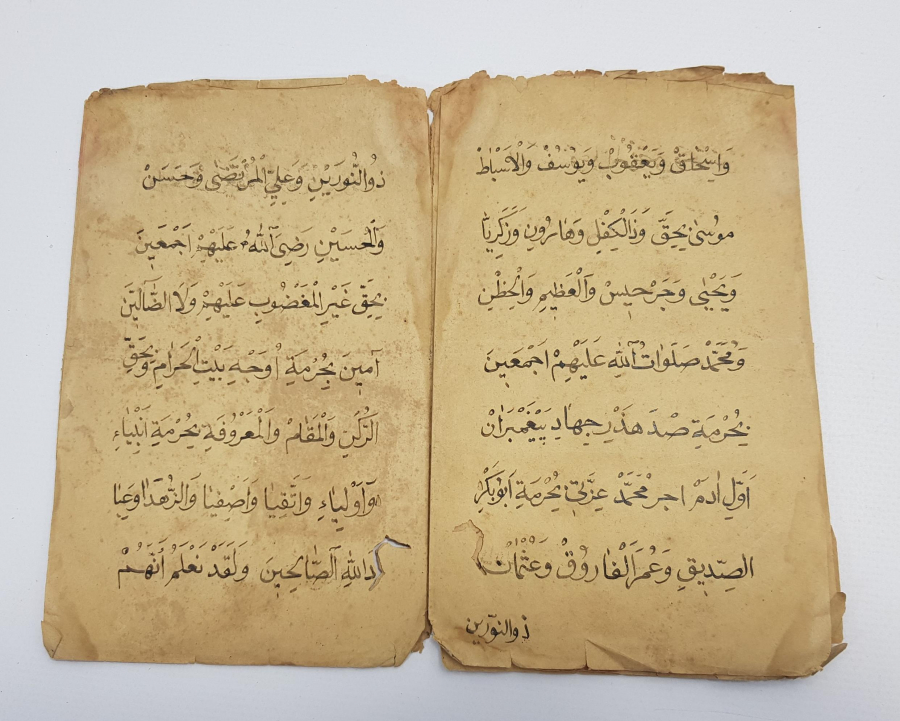 وَاِسْحٰاقْ وَيَعْقُوبْ وَيوُسُفْ وَالْاَسْبٰاطْ
موُسىٰ بِحَقِّ وَذَالْكِفْلِ وَهٰارُونِ وَزَكَرِيّٰا
وَيَحْيٰي وَجَرْجيٖسْ وَالْعَظٖيمِ وَالْخِظْنِ
وَمُحَمَّدْ صَلَوٰاتُ اللّٰهِ عَلَيْهِمْ اَجْمَعٖينَ
بِحُرْمَةِ صْدَ هَذْرِ جِهٰادِ پَيْغَمْبَرٰانْ
اَوَّلِ اٰدَمْ اجر مُحَمَّدْ عِزَّتٖي بِحُرْمَةِ اَبوُبَكَرْ
الصِّدٖيقِ وَعُمَرَ الْفٰاروُقْ وَعُثْمٰانْ
ذوالنوّرين
ذُوالنُّورَيْنِ وَعَلِيِّ الْمُرْتَضٰى وَحَسَنْ
وَالْحُسَيْنِ رَضِيَ اللّٰهُ عَلَيْهِمْ اَجْمَعٖينَ
بِحَقِّ غَيْرِ الْمَغْضُوبِ عَلَيْهِمْ وَلَا الضّٰالّٖينَ
اٰمٖينَ بِحُرْمَةِ اُوجَهِ بَيْتِ الْحَرٰامِ وَبِحَقِّ
الرُّكْنِ وَالْمَقٰامْ وَالْمَعْروُفَةِ بِحُرْمَةِ اَنْبِيٰاءِ
وَاَوْلِيٰاءِ وَاَتْقِيٰا وَاَصْفِيٰا وَالزُّهَدٰا وَعِبٰا
دِاللّٰهِ الصّٰالِحٖينَ وَلَقَدْ نَعْلَمُ اَنَّهُمْ